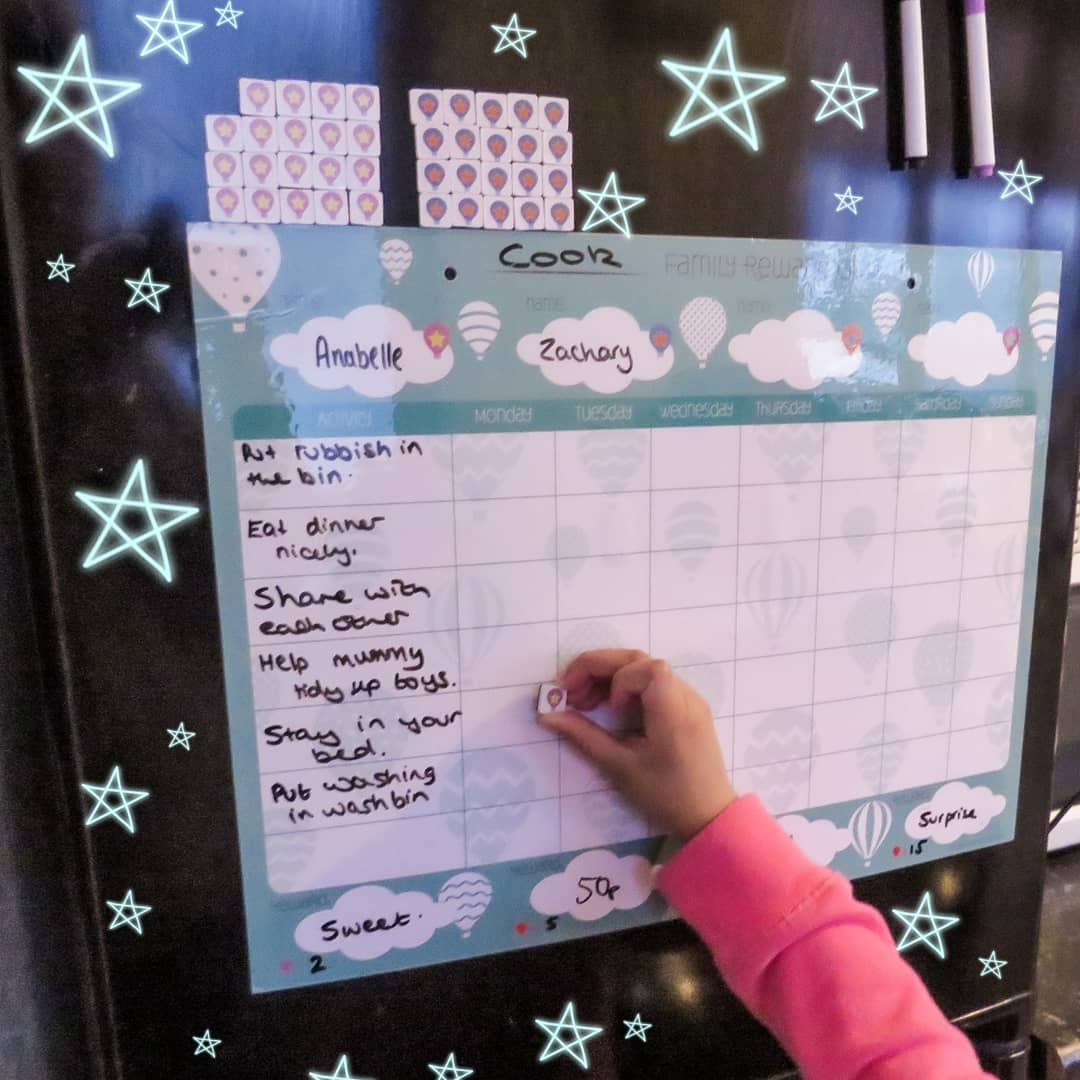 Cook Family Reward
name
Anabelle
Zachary
Activity Monday Tuesday Wednesday Thursday Friday Saturday Sunday
Put rubbish in
the bin.
Eat dinner
nicely.
Share with
each other
Help mummy
tidy up toys.
Stay in your
bed.
Put washing
in wash bin
Sweet.
2
50p
5
Surprise
15